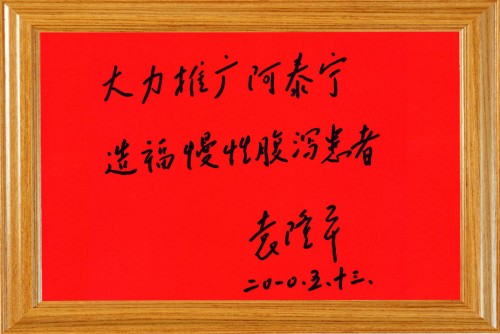 大力推广阿泰宁
造福慢性腹泻患者
袁隆平
二〇一〇.五.十三.